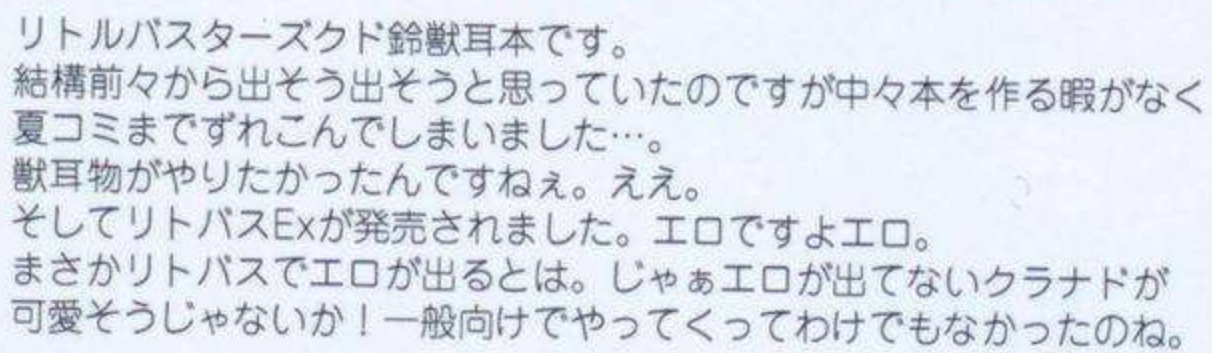 リトルバスターズクド鈴獣耳本です。
結構前々から出そう出そうと思っていたのですが中々本を作る暇がなく
夏コミまでずれこんでしまいました…。
獣耳物がやりたかったんですねぇ。ええ。
そしてリトバスExが発売されました。エロですよエロ。
まさかリトバスでエロが出るとは。じゃぁエロが出てないクラナドが
可愛そうじゃないか！一般向けでやってくってわけでもなかったのね。